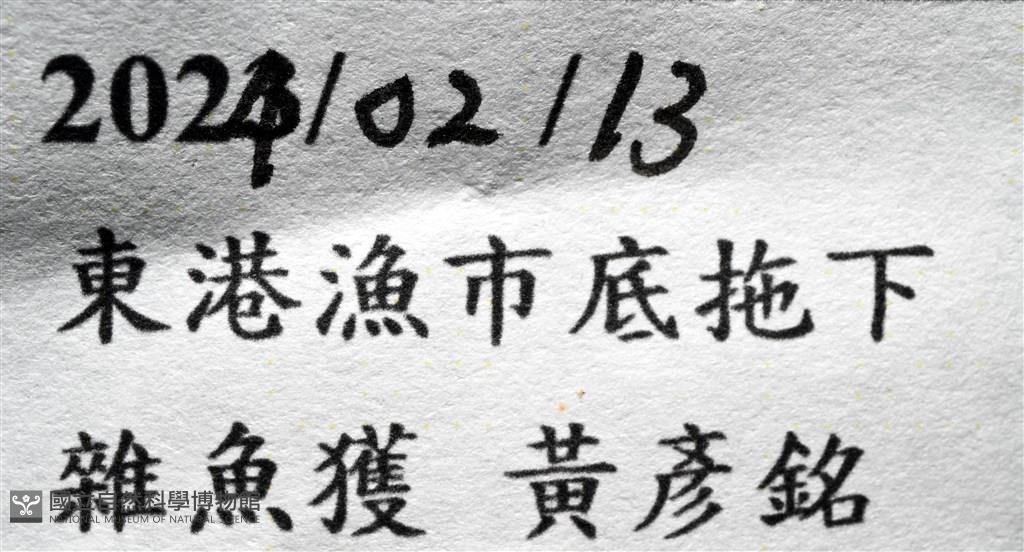 2024/02/13
東港漁市底拖下
雜魚獲 黃彥銘
國立自然科學博物館
NATIONAL MUSEUM OF NATURAL SCIENCE